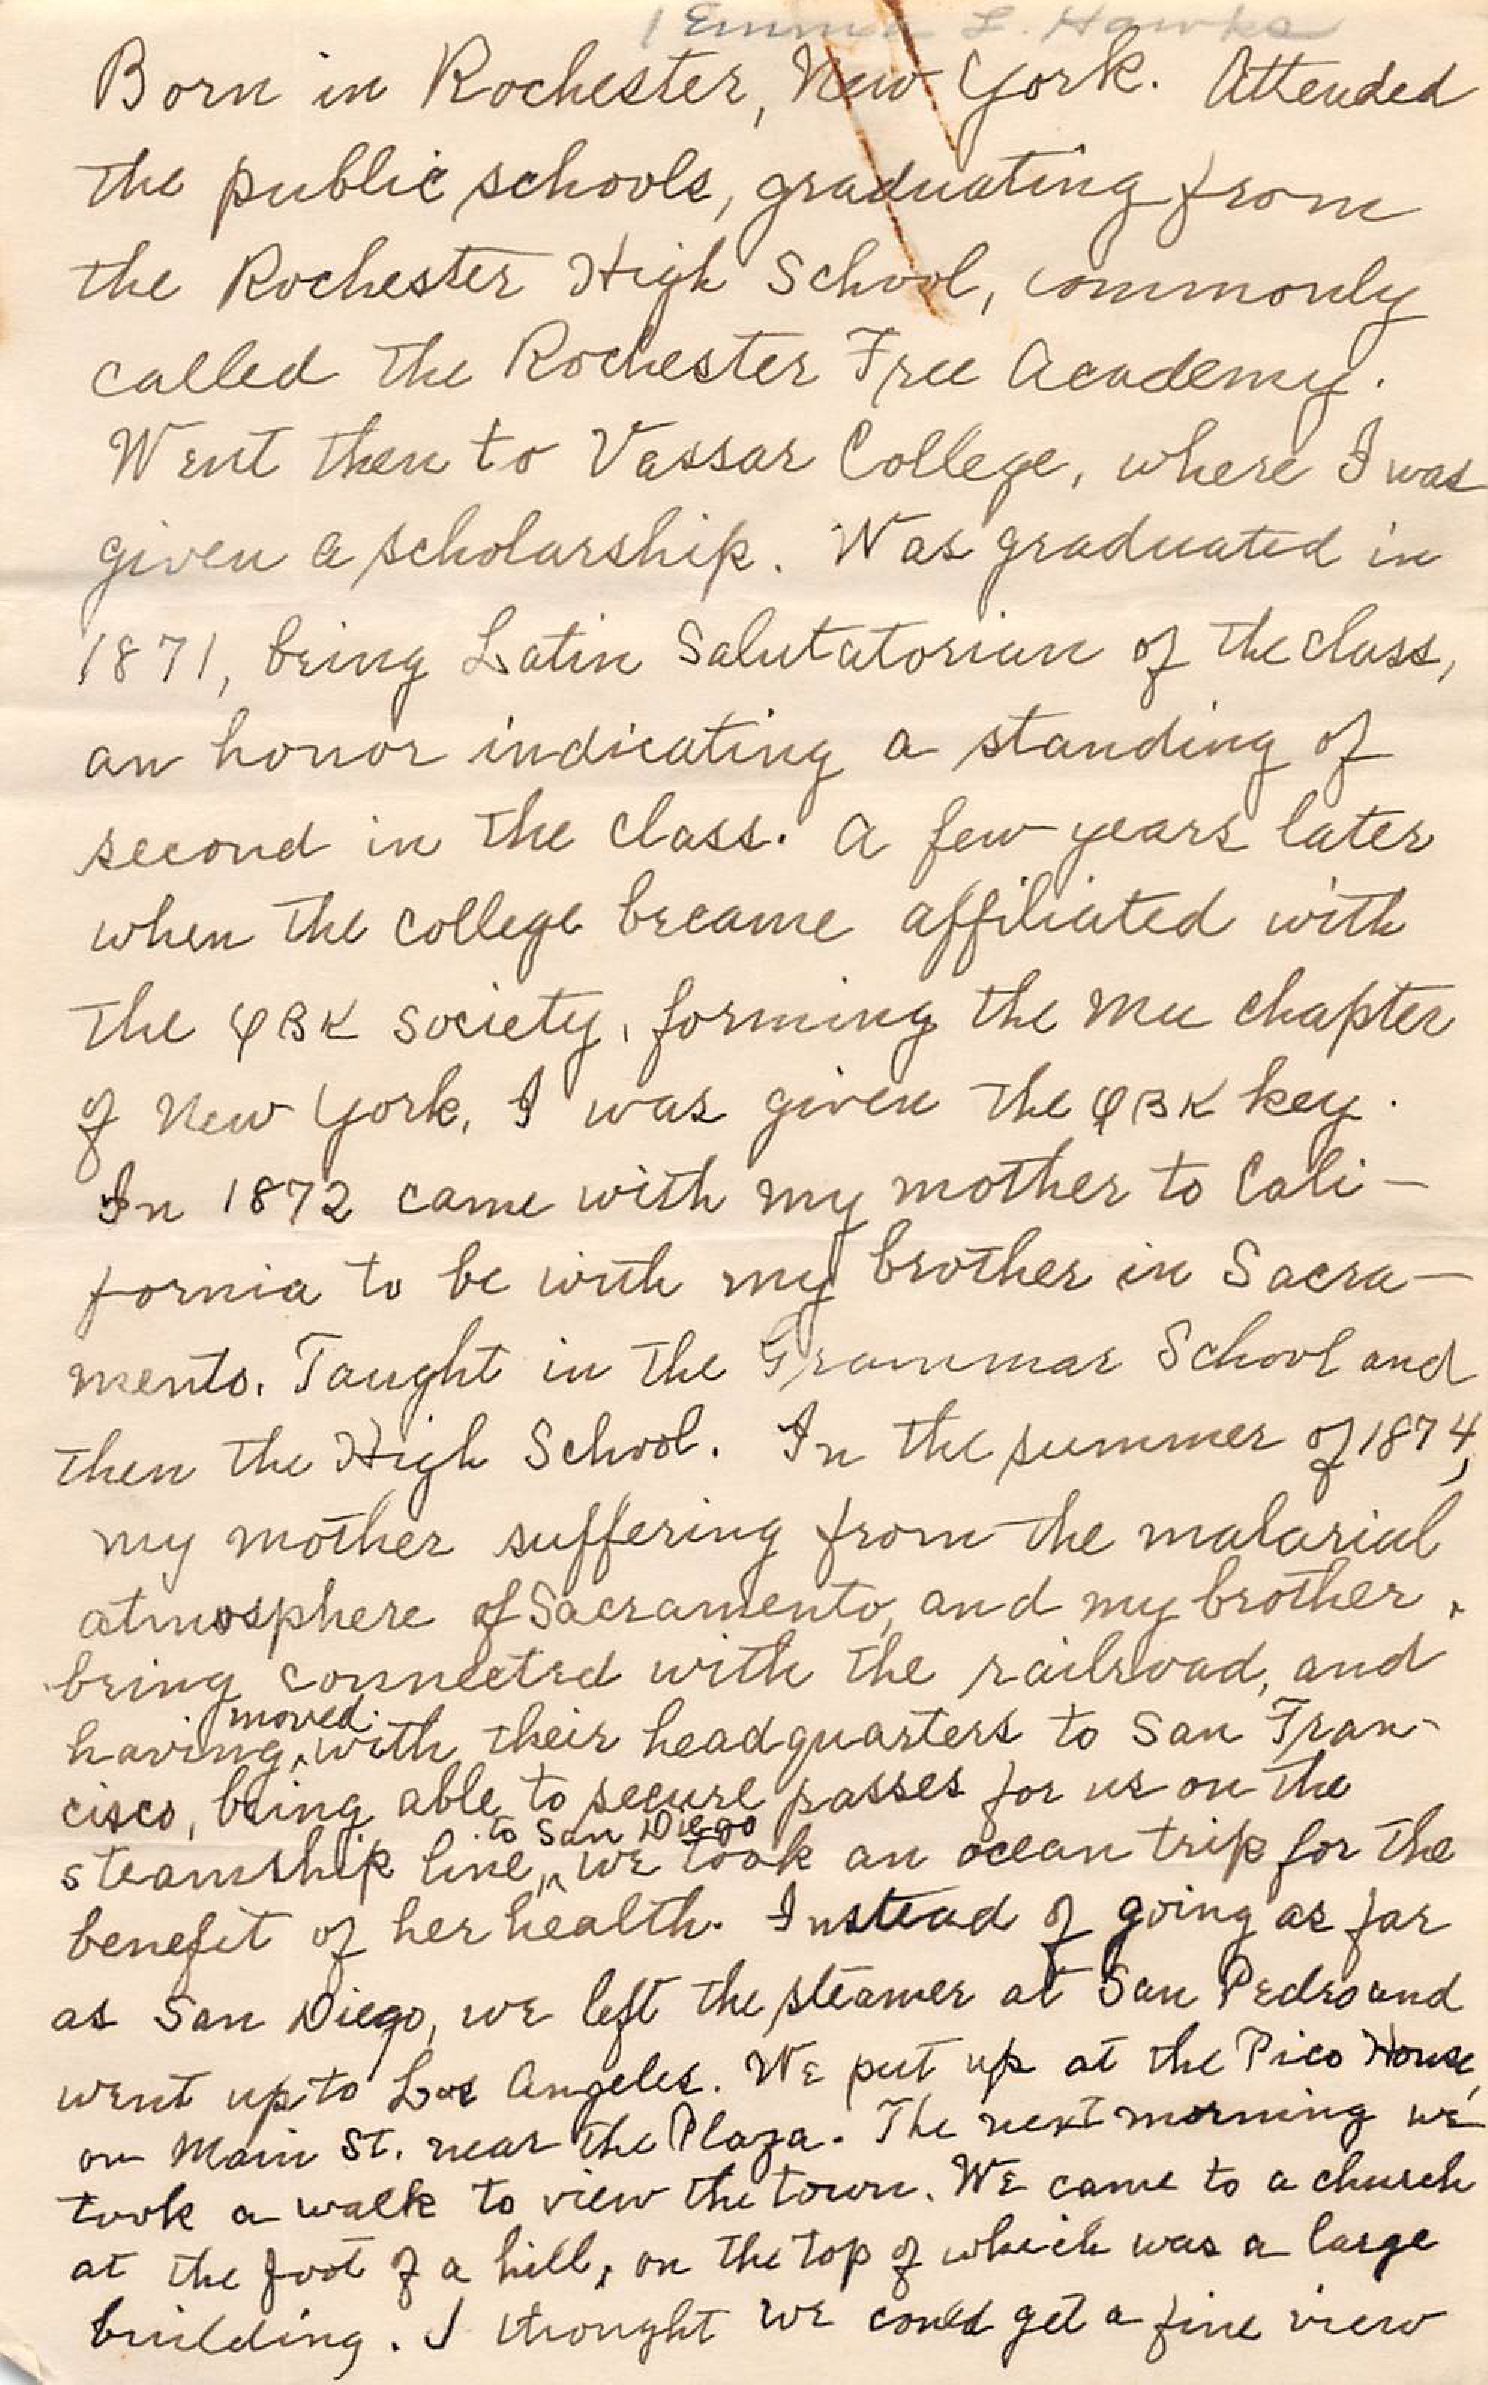 Emma L. Hawks
Born in Rochester, New York. Attended
the public schools, graduating from
the Rochester High School, commonly
called the Rochester Free Academy.
Went then to Vassar College, where I was
given a scholarship. Was graduated in
1871, being Latin Salutatorian of the class,
an honor indicating a standing of
second in the class. A few years later
when the college became affiliated with
the φBK society, forming the Mu chapter
of New York, I was given the φBK key.
In 1872 came with my mother to Cali-
fornia to be with my brother in Sacra-
mento. Taught in the Grammar School and
then the High School. In the summer of 1874,
my mother suffering from the malarial
atmosphere of Sacramento, and my brother,
being connected with the railroad, and
moved
having ^ with their headquarters to San Fran-
cisco, being able to secure passes for us on the
to San Diego
steamship line, ^ we took an ocean trip for the
benefit of her health. Instead of going as far
as San Diego, we left the steamer at San Pedro and
went up to Los Angeles. We put up at the Pico House,
on Main St. near the Plaza. The next morning we
took a walk to view the town. We came to a church
at the foot of a hill, on the top of which was a large
building. I thought we could get a fine view